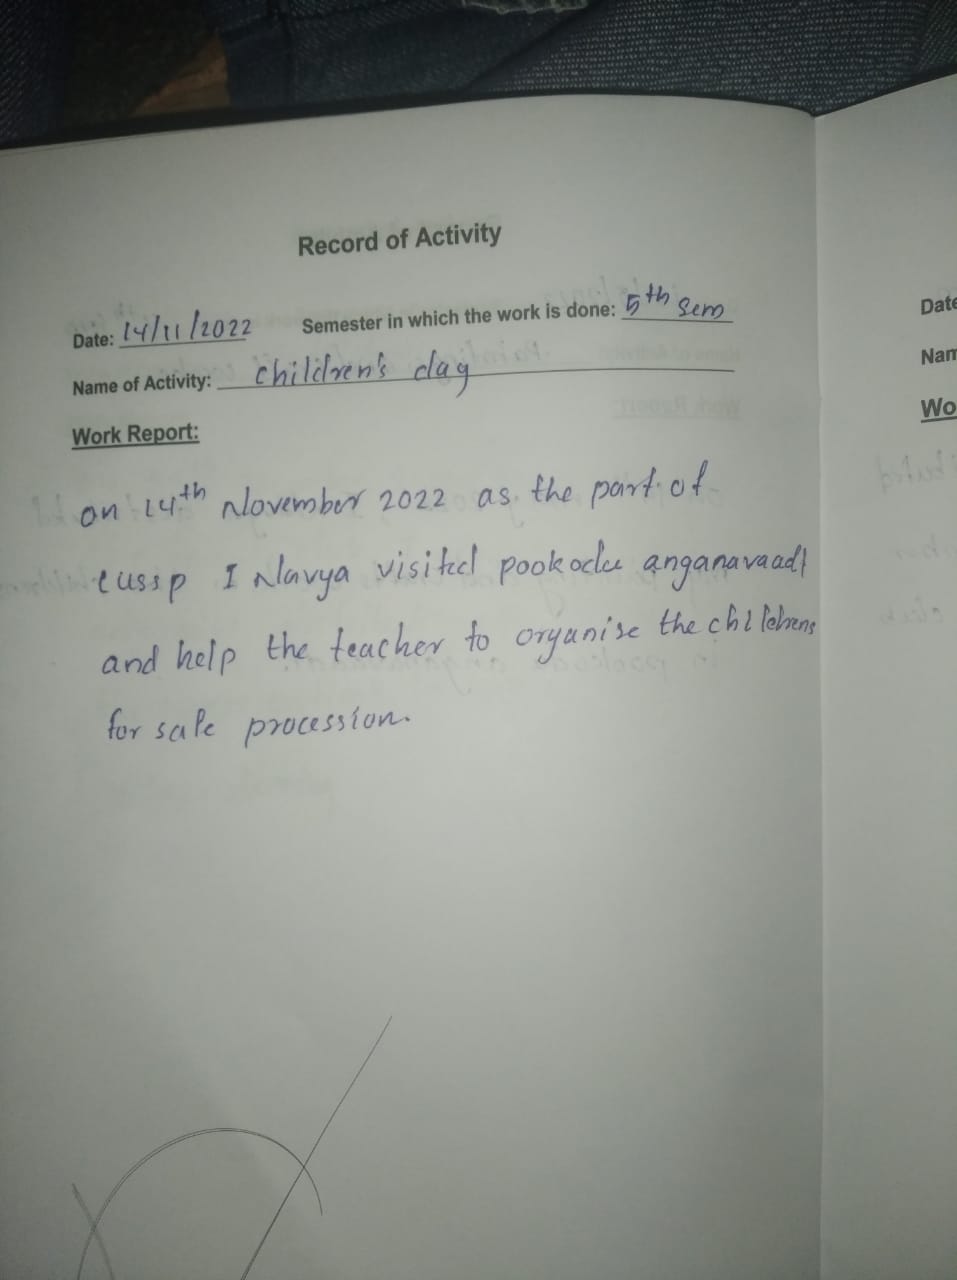 Record of Activity
Date: 14/11/2022 Semester in which the work is done: 5th sem
Name of Activity: children's day
Work Report:
on 14th November 2022 as the part of
cussp I Navya visited pookodu anganavaadi
and help the teacher to organise the childrens
for safe procession.
Date
Nam
Wo